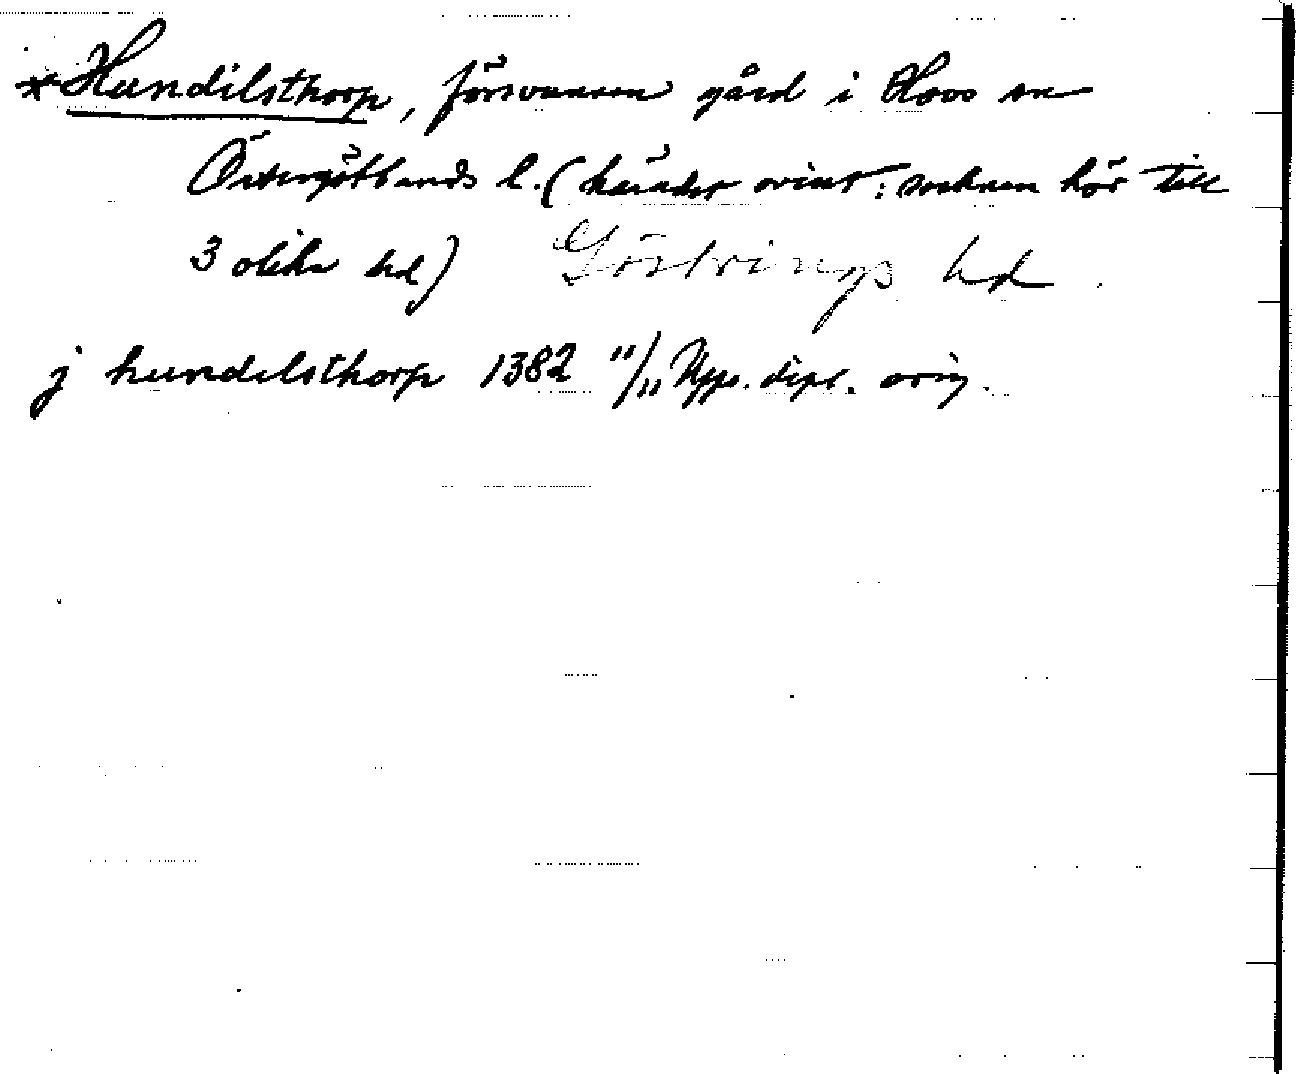 *Hundilsthorp, försvunnen gård i Hovs sn
Östergötlands l. (häradet ovisst: socknen hör till
3 olika hd) Göstrings hd.
j hundelsthorp 1382 11/11 Upps. dipl. orig.